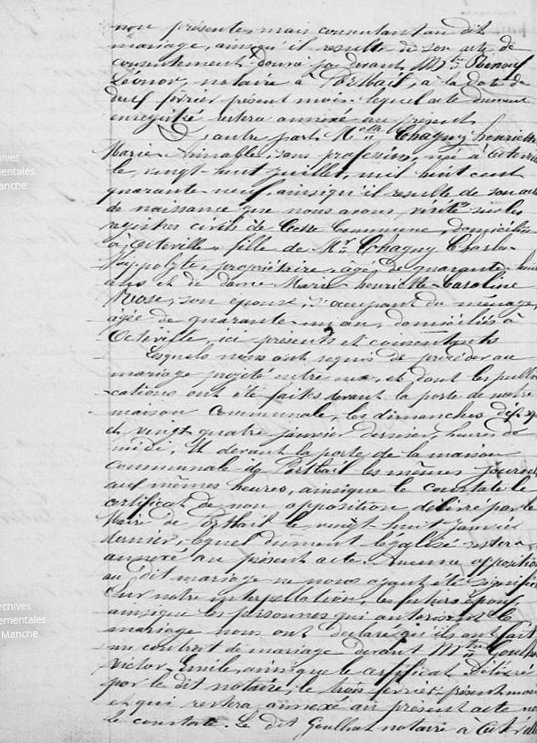 non présente, mais consentant au dit
mariage, ainsi qu'il résulte de son acte de
consentement donné par devant Me
Léonor, notaire à Portbail, à la date de
deux février présent mois, lequel acte dument
enregistré restera annexé au présent.
D'autre part Melle Chaguy henriette
Marie Aimable, sans profession, née à Octeville
le vingt huit juillet, mil huit cent
quarante neuf, ainsi qu'il résulte de son acte
de naissance que nous avons vérifié sur les
registres civils de cette commune, domiciliée
à Octeville, fille de Mr Chaguy Charles
hippolyte, propriétaire, agé de quarante huit
ans et de dame Marie henriette Caroline
Rose, son épouse, s'occupant du ménage,
agée de quarante un ans, domiciliés à
Octeville, ici présents et consentants
Lesquels nous ont requis de procéder au
mariage projeté entre eux, et dont les publi
cations ont été faites devant la porte de notre
maison communale, les dimanches dix sept
et vingt quatre janvier dernier, heures de
midi, Et devant la porte de la maison
communale de Portbail les mêmes jours
aux mêmes heures, ainsi que le constate le
certificat de non opposition délivré par le
Maire de Portbail le vingt huit janvier
dernier, lequel dument légalisé restera
annexé au présent acte. Aucune opposition
au dit mariage ne nous ayant été signifiée
Sur notre interpellation, les futurs époux
ainsi que les personnes qui autorisent le
mariage nous ont déclaré qu'ils ont fait
un contrat de mariage devant Mtre
Victor, Emile, ainsi que le certificat délivré
par le dit notaire, le trois février présent mois
et qui restera annexé au présent acte
le constate. Le dit notaire à Octeville
chives
mentales
Manche
rchives
ementales
Manche